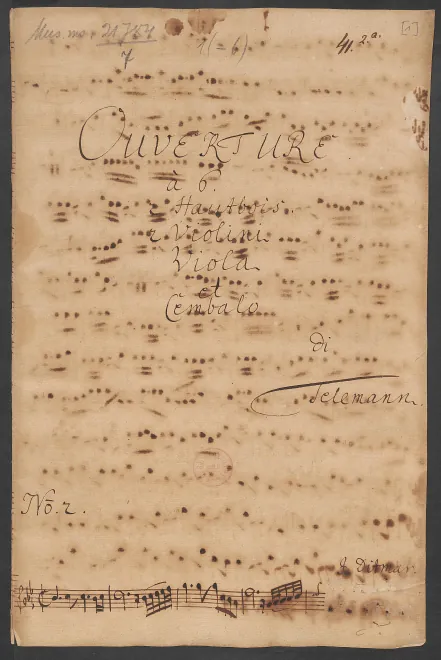 Mus. ms. 21 787
7
1 (-6)
41. 2.a
[1]
OUVERTURE.
à 6.
2 Hautbois.
2 Violini
Viola
et
Cembalo
di
Telemann.
No. 2.